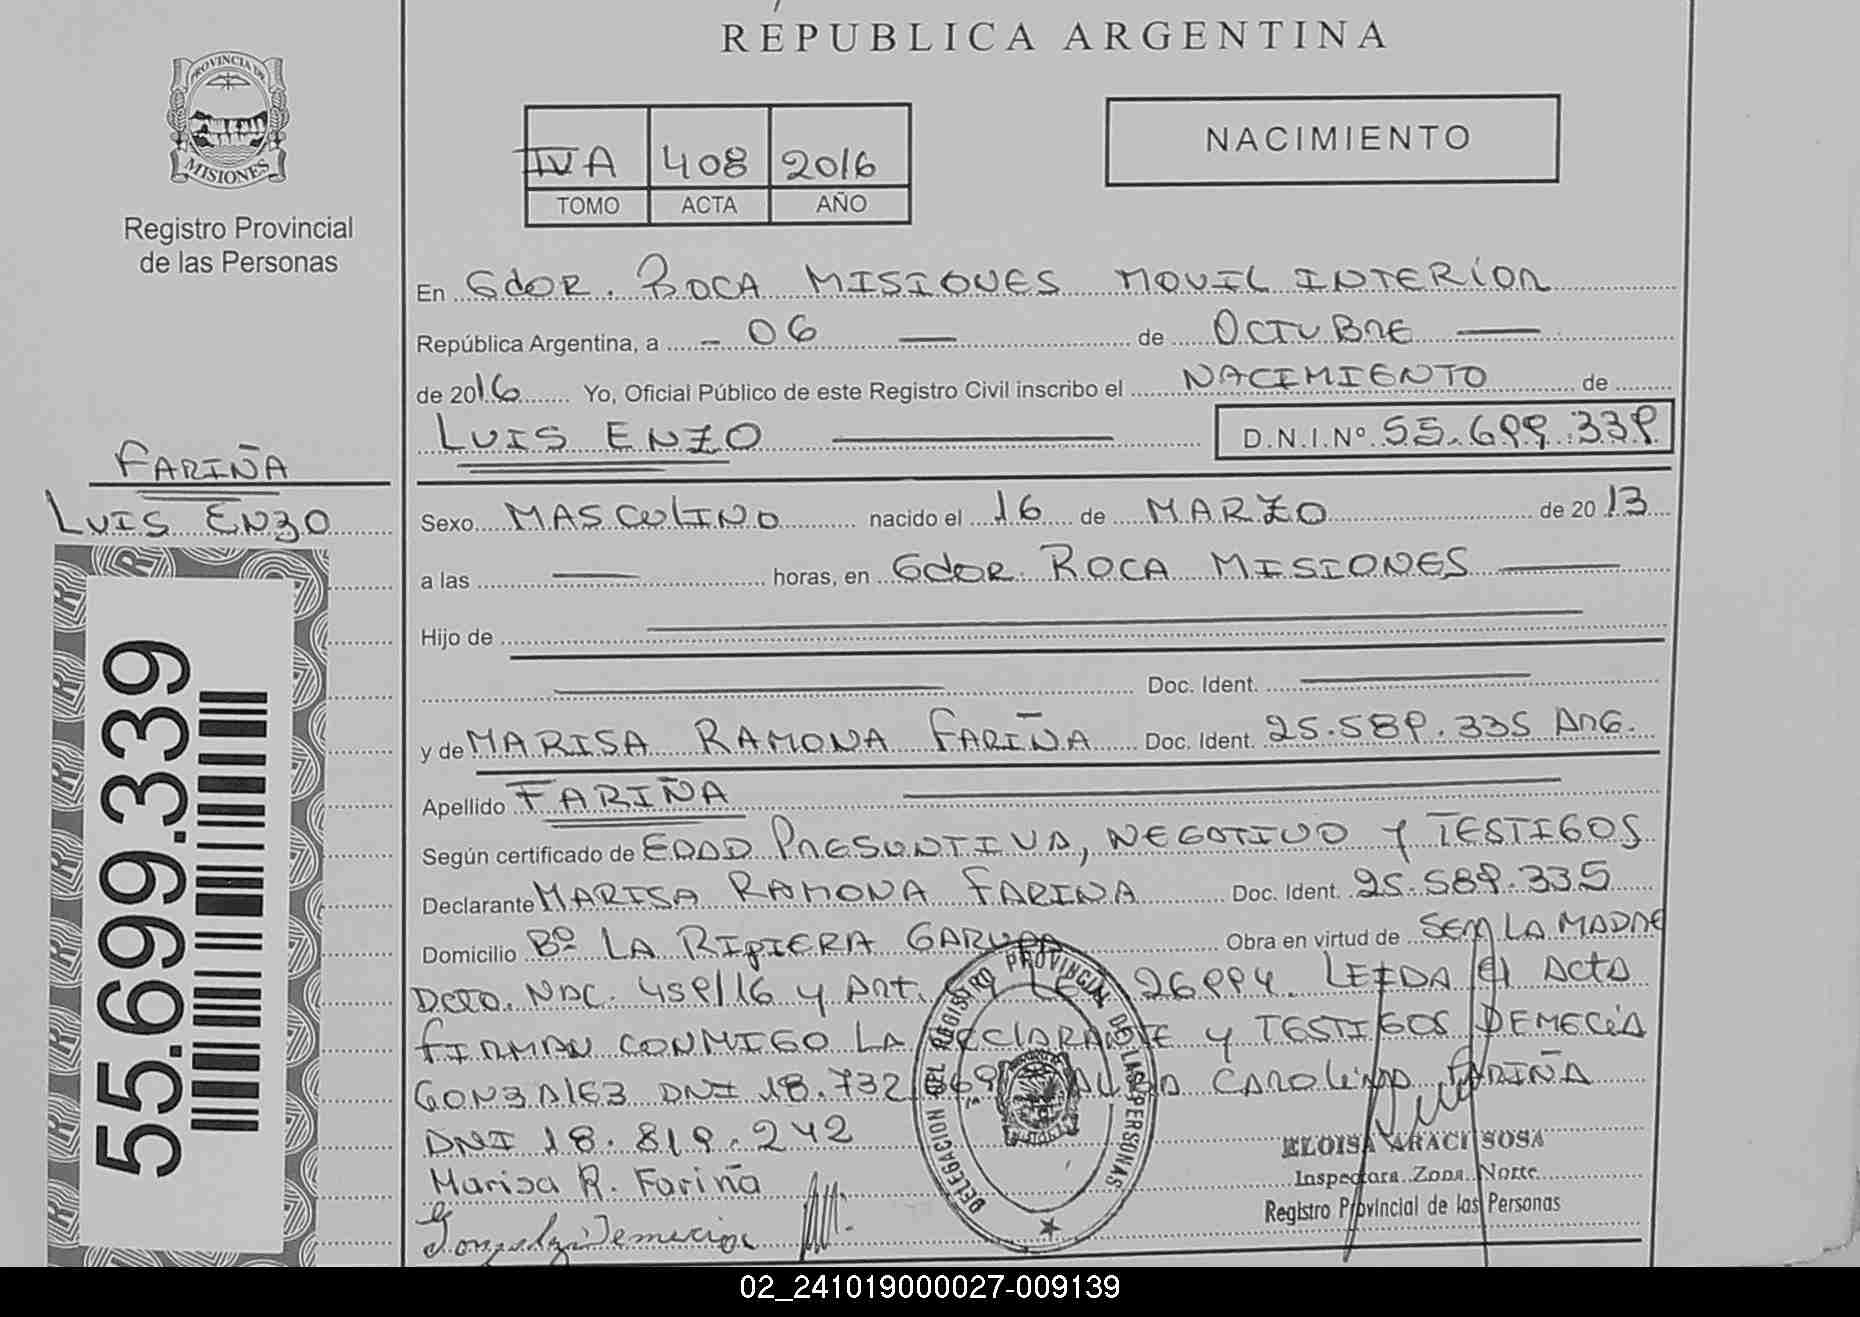 REPUBLICA ARGENTINA
PROVINCIA DE
MISIONES
Registro Provincial
de las Personas
IVA 408 2016
TOMO ACTA AÑO
NACIMIENTO
En Gdor. ROCA MISIONES MOVIL INTERIOR
República Argentina, a 06 de OCTUBRE
de 2016 Yo, Oficial Público de este Registro Civil inscribo el NACIMIENTO de
LUIS ENZO D.N.I.Nº 55.699.339
FARIÑA
LUIS ENZO
55.699.339
Sexo MASCULINO nacido el 16 de MARZO de 2013
a las horas, en Gdor. ROCA MISIONES
Hijo de
Doc. Ident.
y de MARISA RAMONA FARIÑA Doc. Ident. 25.589.335 ARG.
Apellido FARIÑA
Según certificado de EDAD PRESUNTIVA, NEGATIVO Y TESTIGOS
Declarante MARISA RAMONA FARIÑA Doc. Ident. 25.589.335
Domicilio Bº LA RIBIERA GARUPA Obra en virtud de SER LA MADRE
DCTO. NAC. 459/16 y ART. LEY 26994. LEIDA El ACTA
FIRMAN CONMIGO LA DECLARANTE y TESTIGOS DEMECIA
GONZALEZ DNI 18.732 CAROLINA FARIÑA
DNI 18.819.242
Marisa R. Fariña
Gonzalez Demecia
DELEGACION DEL REGISTRO PROVINCIAL DE LAS PERSONAS
ELOISA ARACI SOSA
Inspectora Zona Norte
Registro Provincial de las Personas
02_241019000027-009139